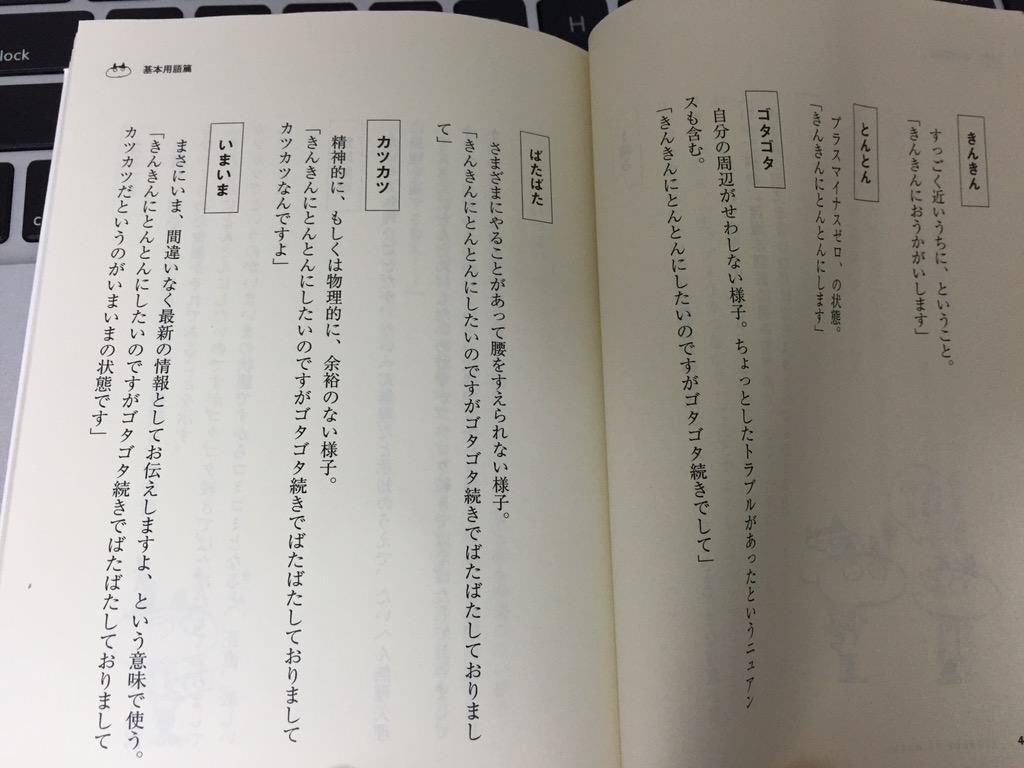 きんきん
すっごく近いうちに、ということ。
「きんきんにおうかがいします」
とんとん
プラスマイナスゼロ、の状態。
「きんきんにとんとんにします」
ゴタゴタ
自分の周辺がせわしない様子。ちょっとしたトラブルがあったというニュアン
スも含む。
「きんきんにとんとんにしたいのですがゴタゴタ続きでして」
基本用語篇
ばたばた
さまざまにやることがあって腰をすえられない様子。
「きんきんにとんとんにしたいのですがゴタゴタ続きでばたばたしておりまし
て」
カツカツ
精神的に、もしくは物理的に、余裕のない様子。
「きんきんにとんとんにしたいのですがゴタゴタ続きでばたばたしておりまして
カツカツなんですよ」
いまいま
まさにいま、間違いなく最新の情報としてお伝えしますよ、という意味で使う。
「きんきんにとんとんにしたいのですがゴタゴタ続きでばたばたしておりまして
カツカツだというのがいまいまの状態です」
4
lock
H
c